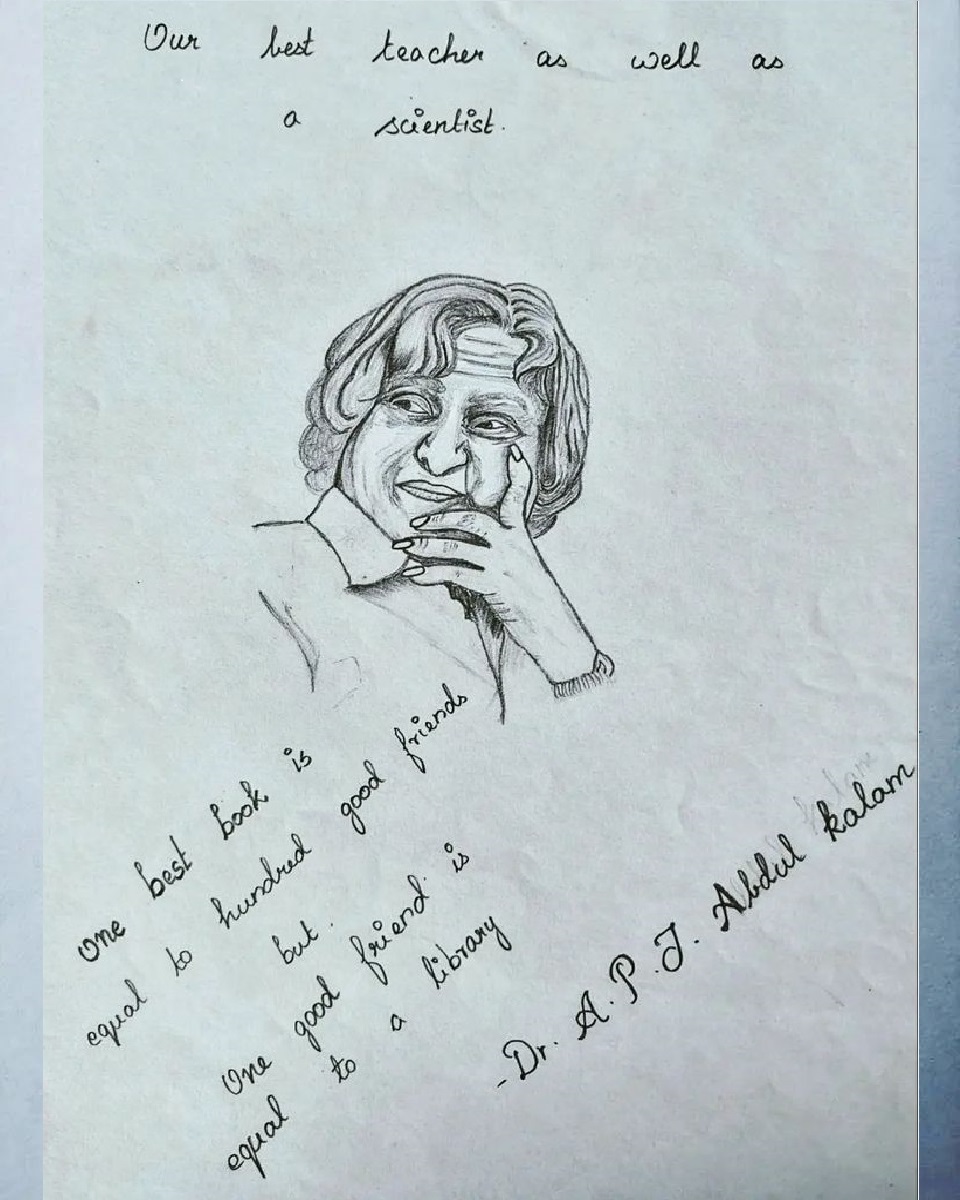 Our best teacher as well as
a scientist.
One best book is
equal to hundred good friends
but.
One good friend is
equal to a library
-Dr. A. P. J. Abdul kalam